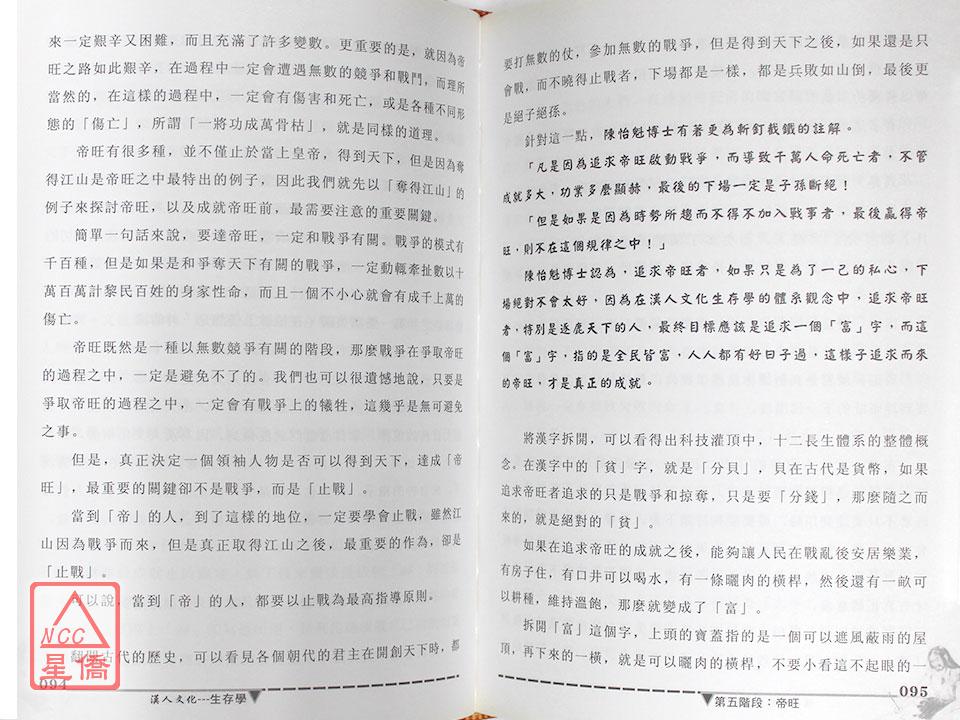 來一定艱辛又困難，而且充滿了許多變數。更重要的是，就因為帝
旺之路如此艱辛，在過程中一定會遭遇無數的競爭和戰鬥，而理所
當然的，在這樣的過程中，一定會有傷害和死亡，或是各種不同形
態的「傷亡」，所謂「一將功成萬骨枯」，就是同樣的道理。
帝旺有很多種，並不僅止於當上皇帝，得到天下，但是因為奪
得江山是帝旺之中最特出的例子，因此我們就先以「奪得江山」的
例子來探討帝旺，以及成就帝旺前，最需要注意的重要關鍵。
簡單一句話來說，要達帝旺，一定和戰爭有關。戰爭的模式有
千百種，但是如果是和爭奪天下有關的戰爭，一定動輒牽扯數以十
萬百萬計黎民百姓的身家性命，而且一個不小心就會有成千上萬的
傷亡。
帝旺既然是一種以無數競爭有關的階段，那麼戰爭在爭取帝旺
的過程之中，一定是避免不了的。我們也可以很遺憾地說，只要是
爭取帝旺的過程之中，一定會有戰爭上的犧牲，這幾乎是無可避免
之事。
但是，真正決定一個領袖人物是否可以得到天下，達成「帝
旺」，最重要的關鍵卻不是戰爭，而是「止戰」。
當到「帝」的人，到了這樣的地位，一定要學會止戰，雖然江
山因為戰爭而來，但是真正取得江山之後，最重要的作為，卻是
「止戰」。
可以說，當到「帝」的人，都要以止戰為最高指導原則。
翻開古代的歷史，可以看見各個朝代的君主在開創天下時，都
094
漢人文化---生存學
NCC
星僑
要打無數的仗，參加無數的戰爭，但是得到天下之後，如果還是只
會戰，而不曉得止戰者，下場都是一樣，都是兵敗如山倒，最後更
是絕子絕孫。
針對這一點，陳怡魁博士有著更為斬釘截鐵的註解。
「凡是因為追求帝旺啟動戰爭，而導致千萬人命死亡者，不管
成就多大，功業多麼顯赫，最後的下場一定是子孫斷絕！
「但是如果是因為時勢所趨而不得不加入戰事者，最後贏得帝
旺，則不在這個規律之中！」
陳怡魁博士認為，追求帝旺者，如果只是為了一己的私心，下
場絕對不會太好，因為在漢人文化生存學的體系觀念中，追求帝旺
者，特別是逐鹿天下的人，最終目標應該是追求一個「富」字，而這
個「富」字，指的是全民皆富，人人都有好日子過，這樣子追求而來
的帝旺，才是真正的成就。
將漢字拆開，可以看得出科技灌頂中，十二長生體系的整體概
念。在漢字中的「貧」字，就是「分貝」，貝在古代是貨幣，如果
追求帝旺者追求的只是戰爭和掠奪，只是要「分錢」，那麼隨之而
來的，就是絕對的「貧」。
如果在追求帝旺的成就之後，能夠讓人民在戰亂後安居樂業，
有房子住，有口井可以喝水，有一條曬肉的橫桿，然後還有一畝可
以耕種，維持溫飽，那麼就變成了「富」。
拆開「富」這個字，上頭的寶蓋指的是一個可以遮風蔽雨的屋
頂，再下來的一橫，就是可以曬肉的橫桿，不要小看這不起眼的一
第五階段：帝旺
095